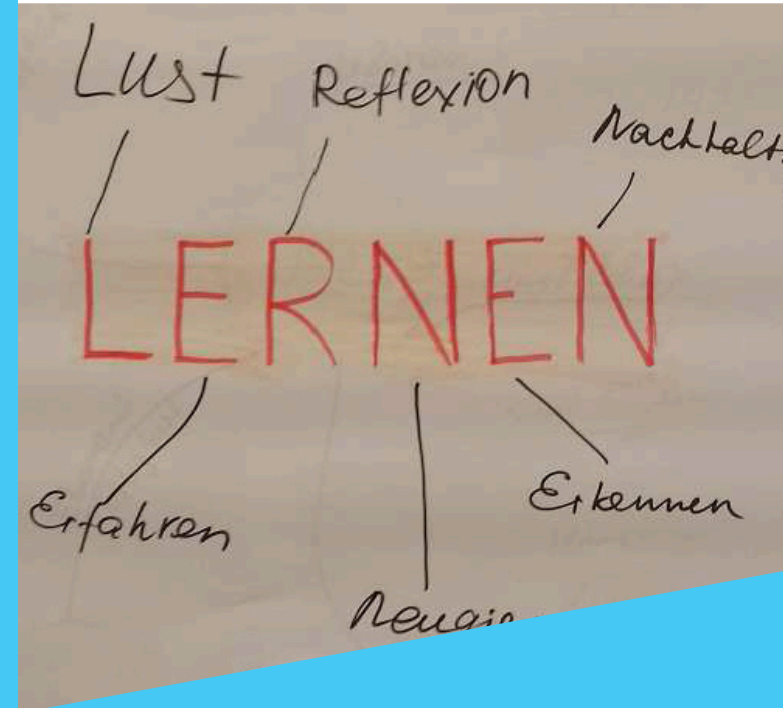 Lust Reflexion
Nachhalt
LERNEN
Erfahren
Erkennen